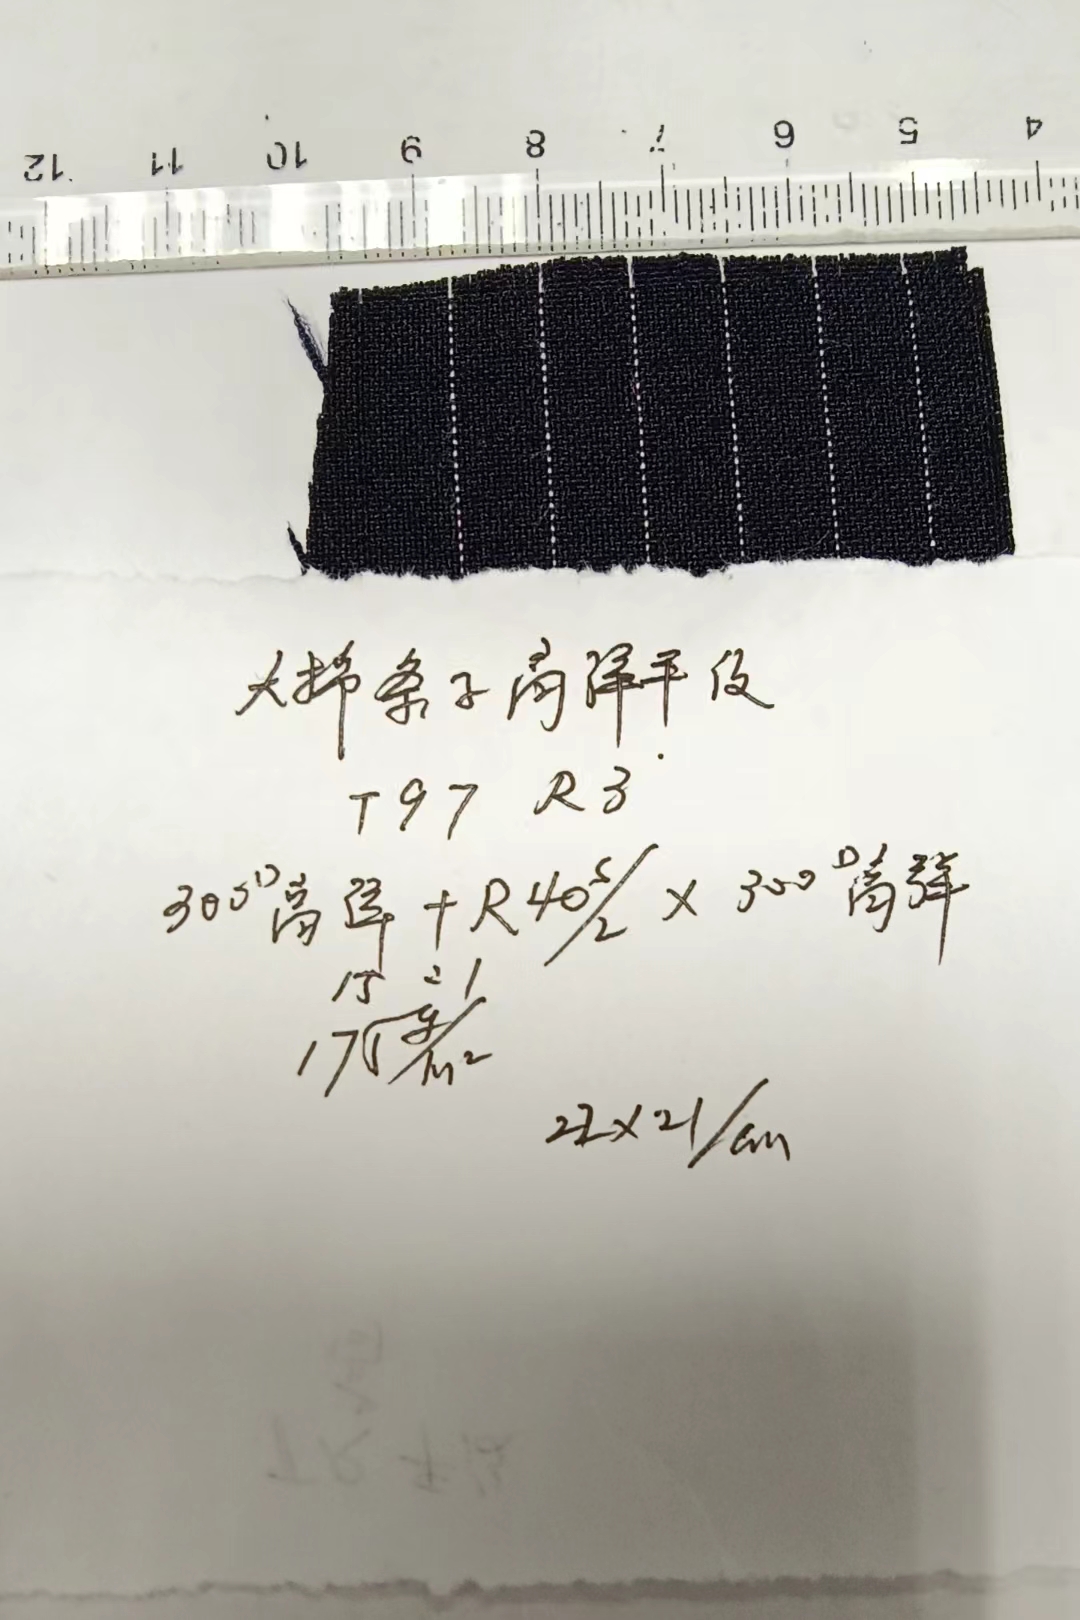 12 11 10 9 8 7 6 5 4
条子高弹平纹
T97 R3
300D高弹+R40S/2×300D高弹
15 21
g/m2
22×21/cm